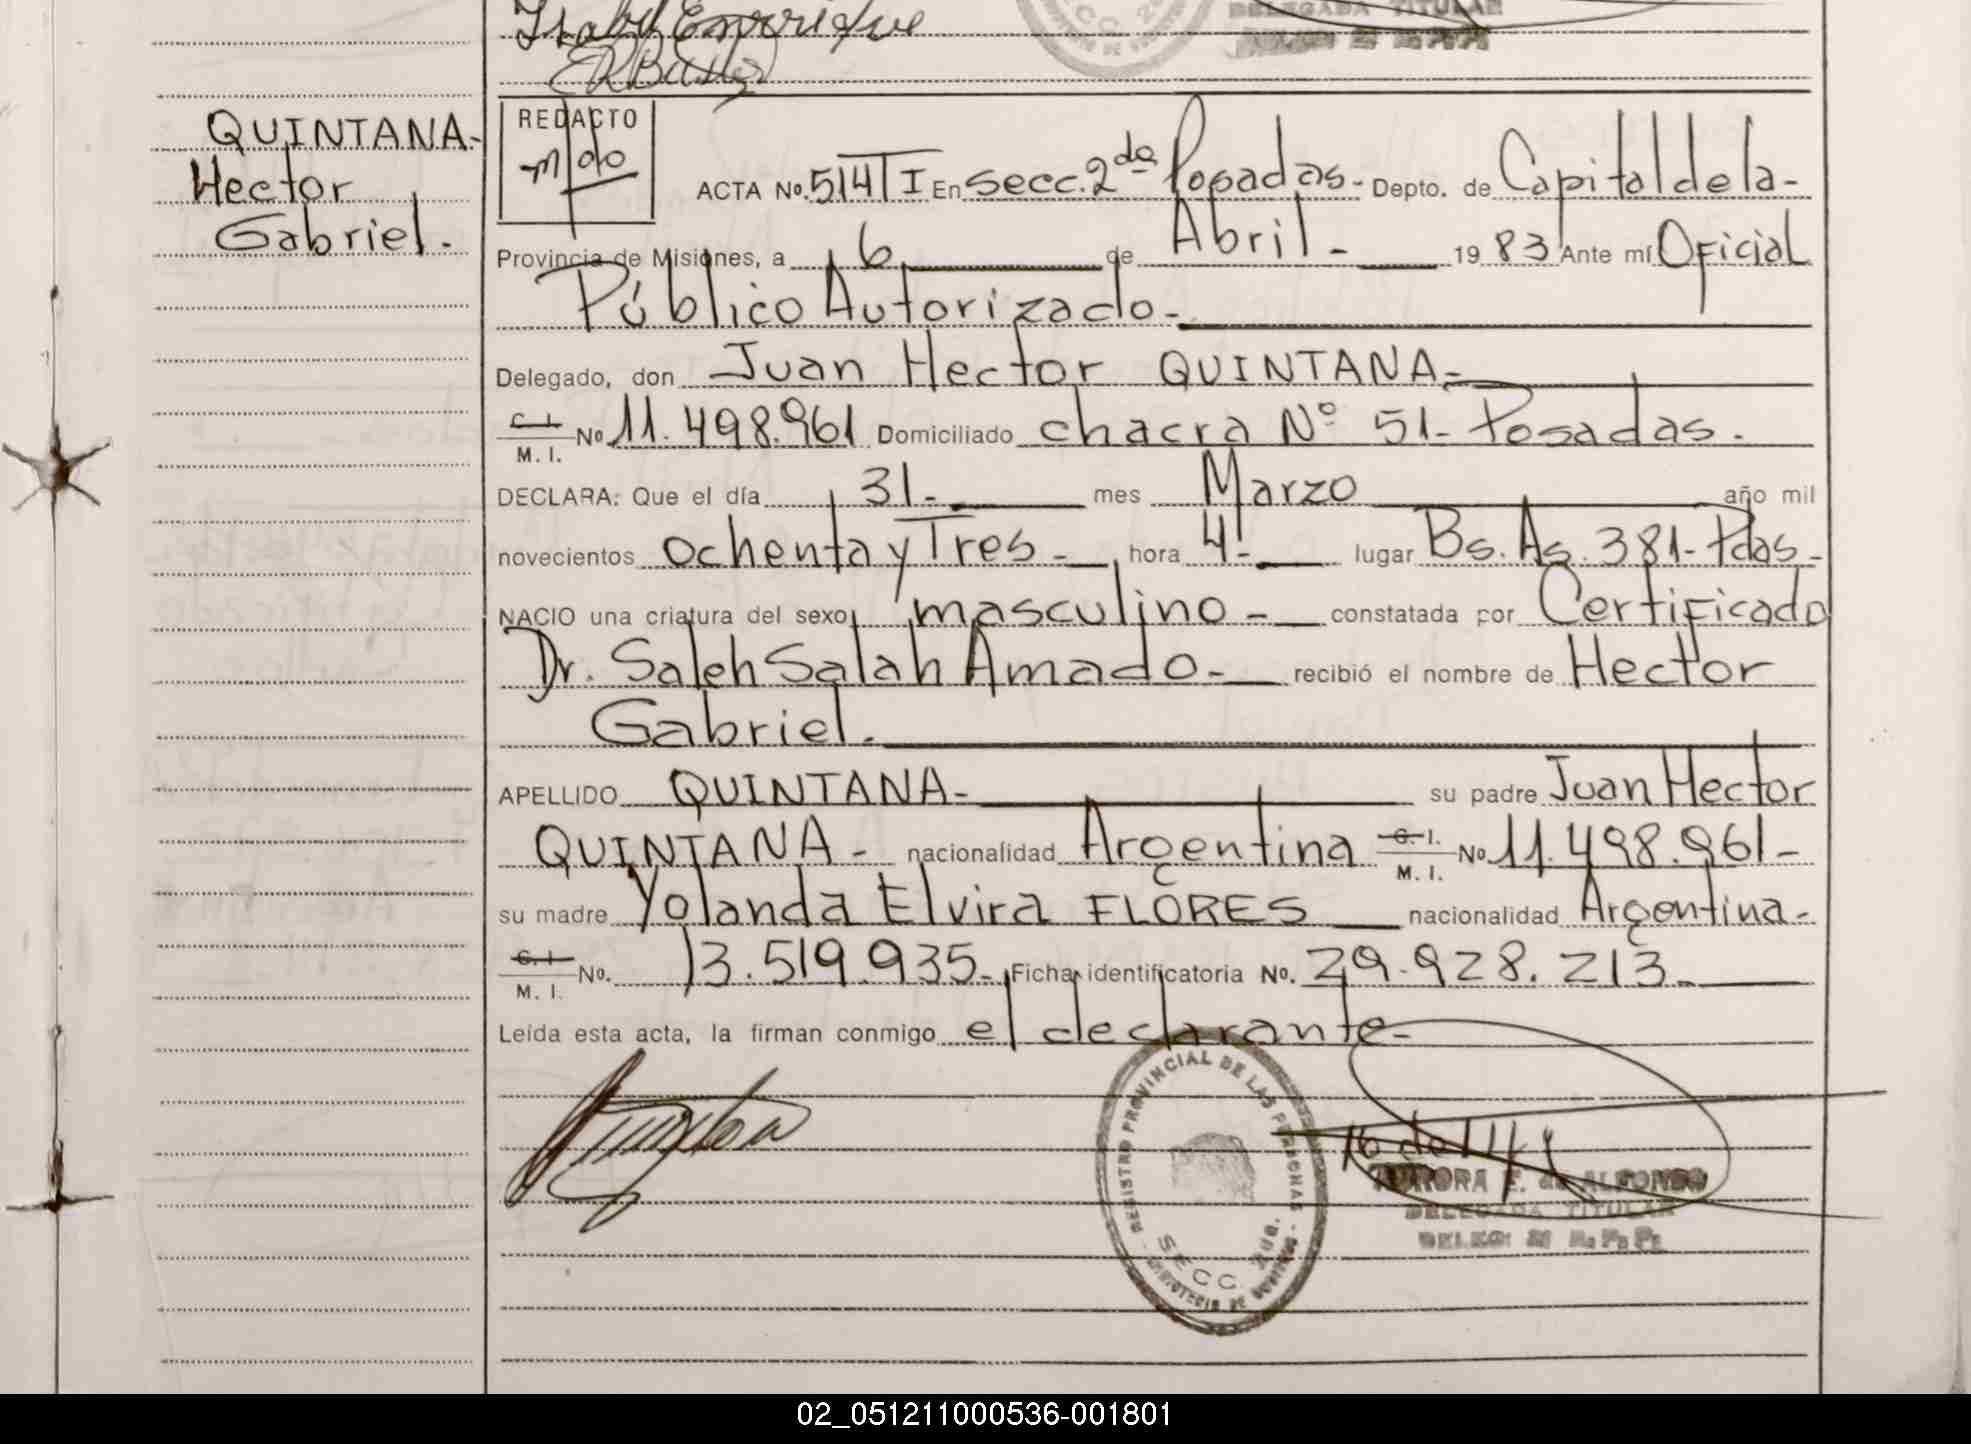 Isabel Enrrique
DELEGADA TITULAR
QUINTANA-
Hector
Gabriel.-
REDACTO
ACTA No. 514 T I En secc. 2da Posadas.- Depto. de Capital de la-
Provincia de Misiones, a 6 de Abril.- 1983 Ante mí Oficial
Público Autorizado.-
Delegado, don Juan Hector QUINTANA.-
C. I.
M. I. No 11.498.961 Domiciliado chacra Nº 51- Posadas.-
DECLARA: Que el día 31.- mes Marzo año mil
novecientos ochenta y Tres.- hora 4!- lugar Bs. As. 381- Pdas-
NACIO una criatura del sexo masculino.- constatada por Certificado
Dr. Saleh Salah Amado.- recibió el nombre de Hector
Gabriel.-
APELLIDO QUINTANA- su padre Juan Hector
QUINTANA- nacionalidad Argentina C. I.
M. I. No 11.498.961-
su madre Yolanda Elvira FLORES nacionalidad Argentina-
C. I.
M. I. No. 13.519.935- Ficha identificatoria No. 29.928.213-
Leída esta acta, la firman conmigo el declarante-
REGISTRO PROVINCIAL DE LAS PERSONAS
MINISTERIO DE GOBIERNO
SECC.
AURORA E. de ALFONSO
DELEGADA TITULAR
02_051211000536-001801